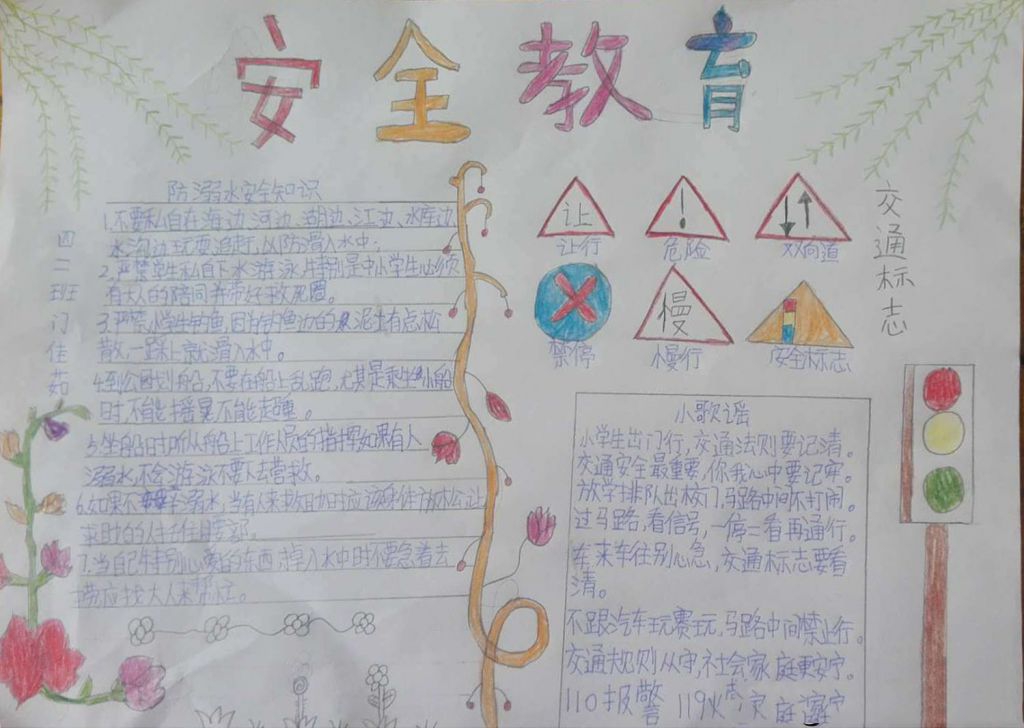 安全教育
防溺水安全知识
1.不要私自在海边、河边、湖边、江边、水库边、
水沟边玩耍追赶,以防滑入水中.
2.严禁学生私自下水游泳,特别是中小学生必须
有大人的陪同并带好救圈。
3.严禁小学生钓鱼,因为钓鱼边的泥土有点松
散,一踩上就滑入水中。
4.到公园划船,不要在船上乱跑,尤其是乘坐小船
时,不能摇晃不能起。
5.坐船时听从船上工作人员的指挥如果有人
溺水,不会游泳不要下去营救。
6.如果不溺水,当有人来救助时应该身体放松让
求助的人托住腰部。
7.当自己特别心爱的东西,掉入水中时不要急着去
捞应找大人来帮忙。
四二班门佳茹
让
让行
危险
双向道
禁停
慢
慢行
安全标志
交通标志
小歌谣
小学生出门行,交通法则要记清。
交通安全最重要,你我心中要记牢。
放学排队出校门,马路中间不打闹。
过马路,看信号,一停二看再通行。
车来车往别心急,交通标志要看
清。
不跟汽车玩赛玩,马路中间禁止行。
交通规则从守,社会家庭更安宁。
110报警 119火 庭